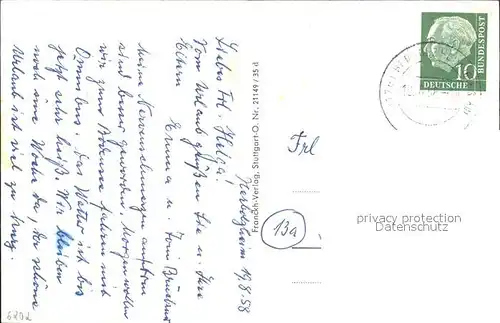 Herbolzheim 19.8.58
Liebes Frl. Helga!
Vom Urlaub grüßen Sie u. Ihre
Eltern Emma u. Toni
meine Nervenentzündungen
sind besser geworden. Morgen wollen
wir zum Bodensee fahren mit
Omnibus. Das Wetter ist bis
jetzt sehr heiß. Wir bleiben
noch eine Woche da, der schöne
Urlaub ist viel zu kurz.
Franckh-Verlag, Stuttgart-O. Nr. 21149/35 d
Frl
13a
10
DEUTSCHE
BUNDESPOST
privacy protection
Datenschutz
6202